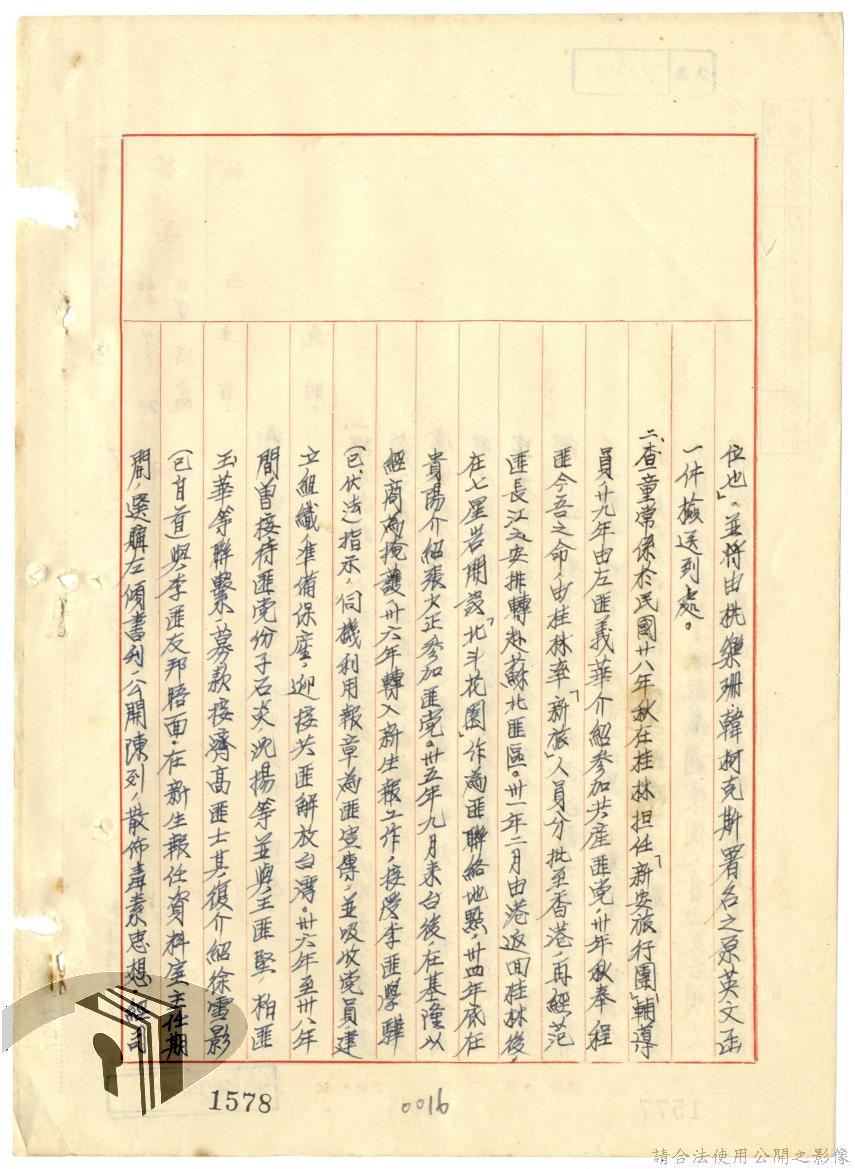 位也」。並將由桃樂珊、韓柯克斯署名之原英文函
一件檢送到處。
二、查童常係於民國卅八年秋在桂林担任「新安旅行團」輔導
員,卅九年由左匪義華介紹參加共產匪党,卅年秋奉程
匪今吾之命,由桂林率「新旅」人員分批至香港,再經范
匪長江之安排轉赴蘇北匪區。卅一年二月由港返回桂林後,
在七星岩開設「北斗花園」作為匪聯絡地點,卅四年底在
貴陽介紹張大正參加匪党。卅五年九月来台後,在基隆以
經商為掩護,卅六年轉入新生報工作,接受李匪學驊
(已伏法)指示,伺機利用報章為匪宣傳,並吸收党員建
立組織,準備保產,迎接共匪解放台灣。卅六年至卅八年
間曾接待匪党份子石炎、沈揚等並與王匪堅、柏匪
玉華等聯繫,募款接濟高匪士其,復介紹徐雪影
(已自首)與李匪友邦晤面。在新生報任資料室主任期
間,選購左傾書刊,公開陳列,散佈毒素思想,
1578
0016
請合法使用公開之影像